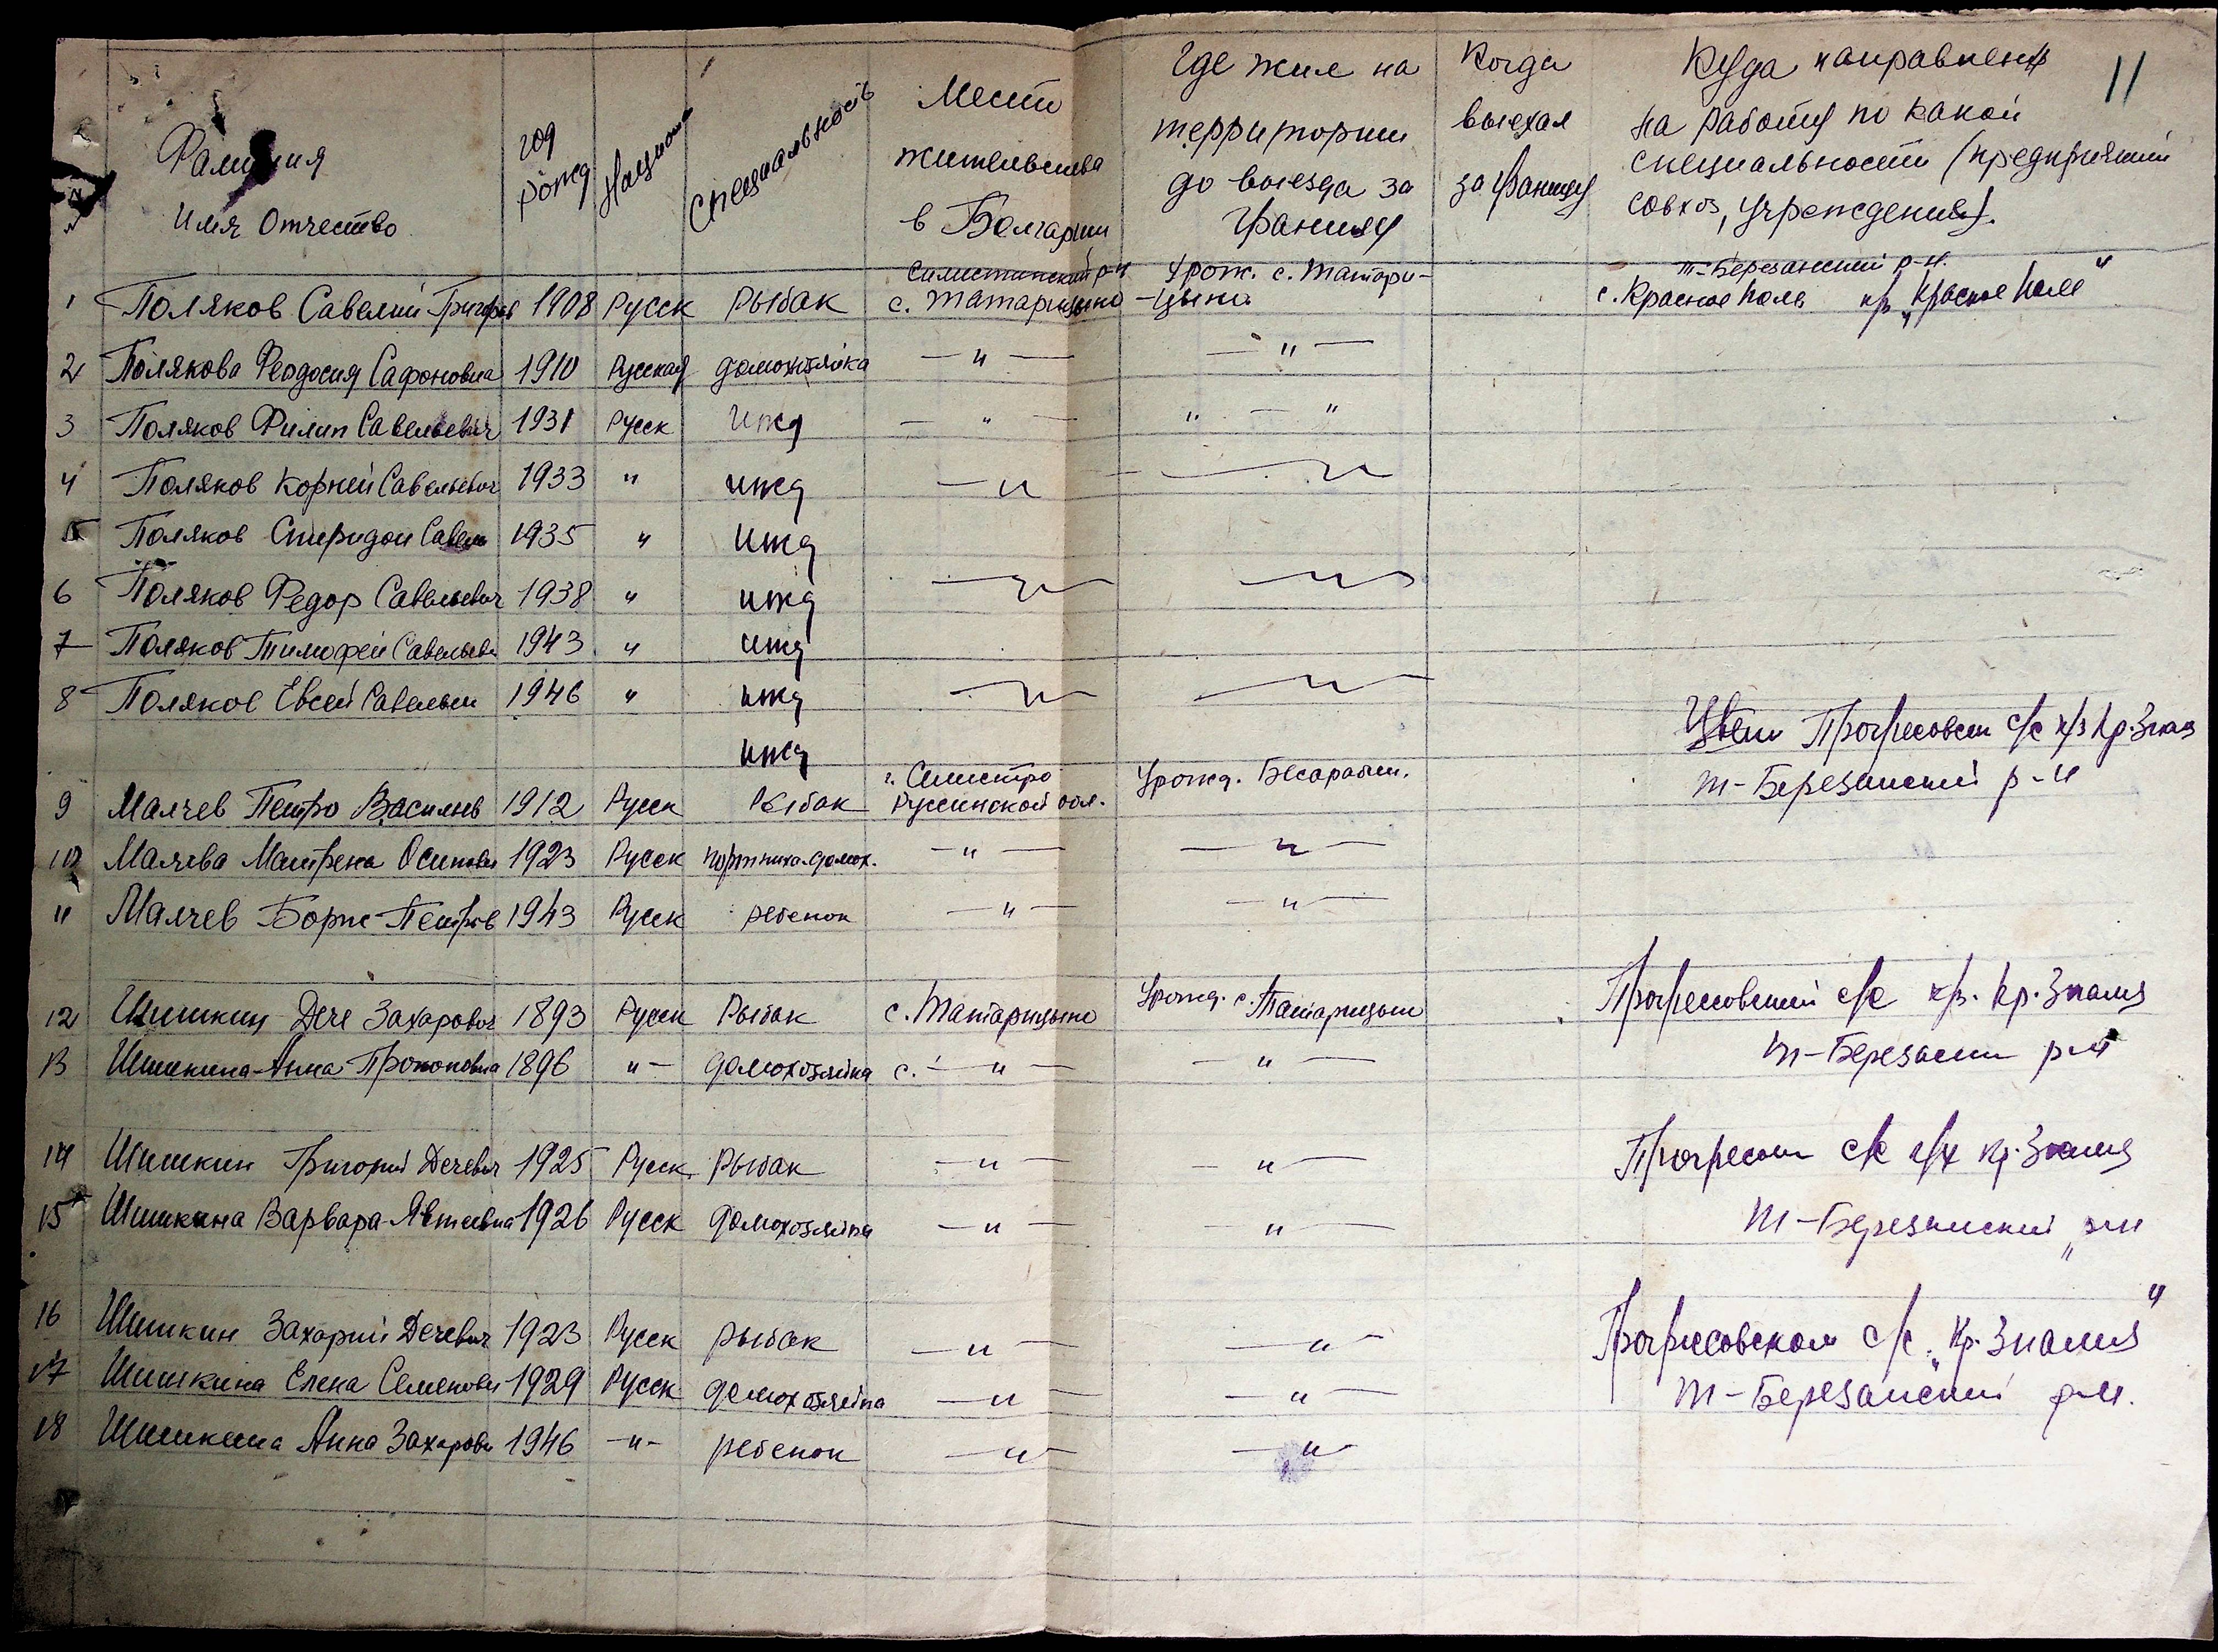 11
№
Фамилия
Имя Отчество
год
рожд
Национ
Специальность
Место
жительства
в Болгарии
Где жил на
территории
до выезда за
границу
Когда
выехал
за границу
Куда направлены
на работу по какой
специальности (предприятий
совхоз, учреждения).
1 Поляков Савелий Григорьев 1908 Русск Рыбак Силистинский р-н с. Татарицыно Урож. с. Татари-
-цыно т-Березанский р-н.
с. Красное Поле к/з „Красное Поле"
2 Полякова Феодосия Сафоновна 1910 Русская домохозяйка — " — — " —
3 Поляков Филип Савельевич 1931 Русск ижд — " — " — "
4 Поляков Корней Савельевич 1933 " ижд — " — " —
5 Поляков Спиридон Савель 1935 " ижд
6 Поляков Федор Савельевич 1938 " ижд — " — — " —
7 Поляков Тимофей Савельеви 1943 " ижд
8 Поляков Евсей Савельеи 1946 " ижд — " — — " —
ижд
Прогресовск с/с к/з Кр. Знамя
т-Березанский р-н
9 Малчев Петро Васильев 1912 Русск Рыбак г. Силистра
Русинской обл. Урожд. Бесарабии.
10 Малчева Матрена Осиповн 1923 Русск портниха-домох. — " — — " —
11 Малчев Борис Петров 1943 Русск ребенок — " — — " —
12 Шишкин Дече Захарович 1893 Русск Рыбак с. Татарицыно Урожд. с. Татарицыно Прогресовский с/с к/з. Кр. Знамя
13 Шишкина Анна Прокоповна 1896 " — домохозяйка с. — " — — " — т-Березанск р-н
14 Шишкин Григорий Дечевич 1925 Русск. Рыбак — " — — " — Прогресовск с/с к/х Кр. Знамя
15 Шишкина Варвара Явтеевна 1926 Русск домохозяйка — " — — " — т-Березанский р-н
16 Шишкин Захарий Дечевич 1923 Русск рыбак — " — — " — Прогресовском с/с. „Кр. Знамя"
17 Шишкина Елена Семеновн 1929 Русск домохозяйка — " — — " — т-Березанский р-н.
18 Шишкина Анна Захаровн 1946 — " — ребенок — " — — " —